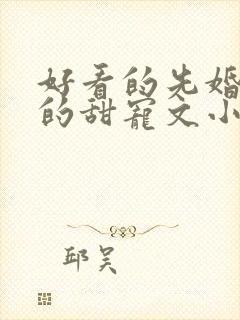 好看的先婚
的甜宠文小
邱昊